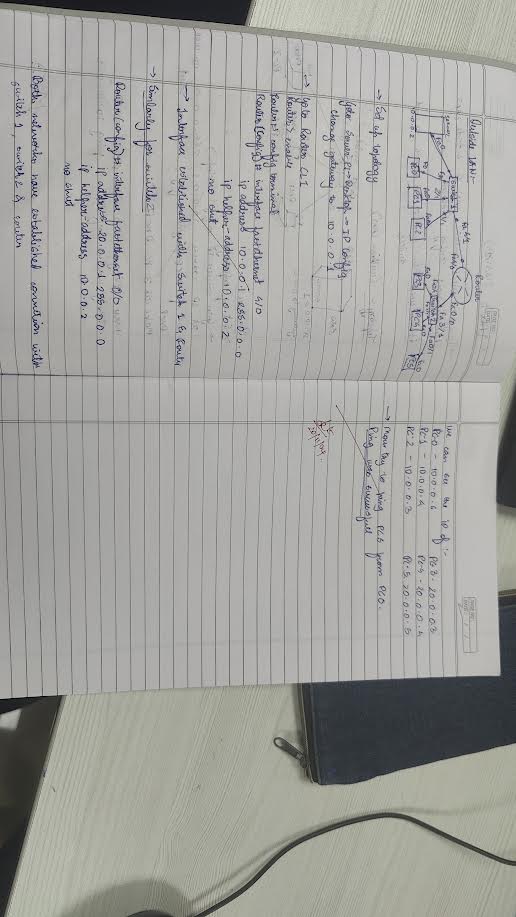 Outside LAN:-
Router
Server
10.0.0.2
Switch 1
Fa 4/1
Fa 0/0
Fa 3/1
Fa 0/1
PC0
PC1
PC2
PC3
PC4
PC5
→ Set up topology
goto Server PT → Desktop → IP Config
change gateway to 10.0.0.1
→ goto Router CLI
Router> enable
Router# config terminal
Router(config)# interface fastethernet 4/0
ip address 10.0.0.1 255.0.0.0
ip helper-address 10.0.0.2
no shut
→ Interface established with Switch 1 & Router
→ Similarly for switch 2
Router(config)# interface fastethernet 0/0
ip address 20.0.0.1 255.0.0.0
ip helper-address 10.0.0.2
no shut
∴ Both networks have established connection with
switch 1, switch 2 & router
PAGE NO.
DATE
We can see the ip of :-
PC0 - 10.0.0.
PC3 - 20.0.0.3
PC1 - 10.0.0.4
PC4 - 20.0.0.4
PC2 - 10.0.0.3
PC5 20.0.0.5
→ Now try to ping PC5 from PC0.
Ping was successful